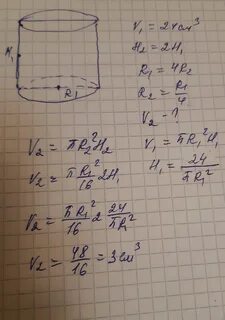 V₁ = 24 см³
H₂ = 2H₁
R₁ = 4R₂
R₂ = R₁/4
V₂ - ?
H₁
R₁
V₂ = πR₂²H₂
V₁ = πR₁²H₁
V₂ = πR₁²/16 2H₁
H₁ = 24/πR₁²
V₂ = πR₁²/16 2 24/πR₁²
V₂ = 48/16 = 3 см³